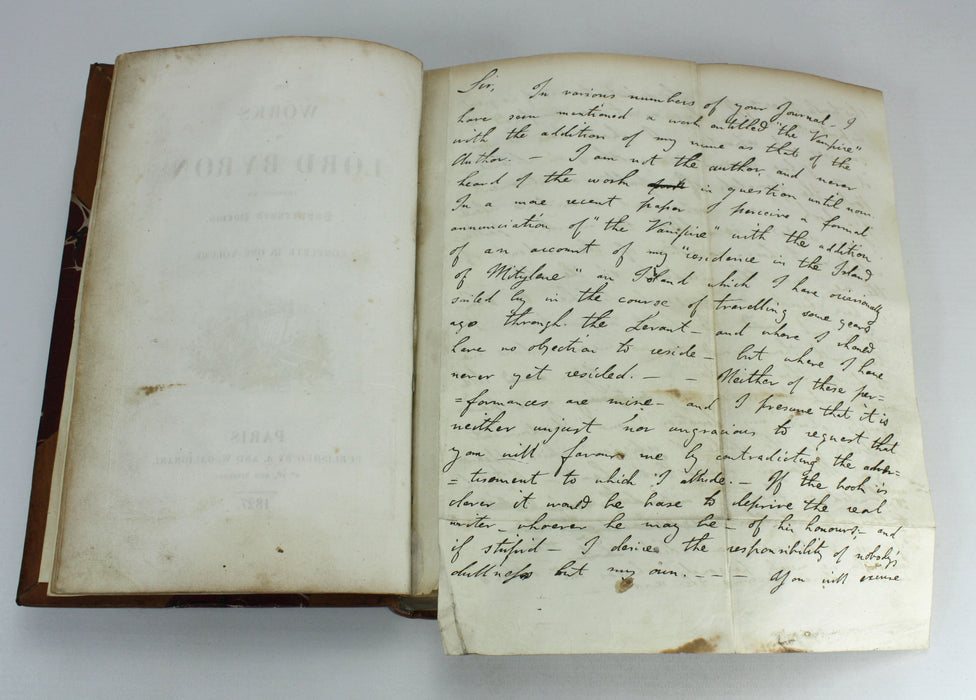 WORKS
LORD BYRON
SUPPRESSED POEMS
COMPLETE IN ONE VOLUME
PARIS
PUBLISHED BY A. AND W. GALIGNANI,
1827
Sir, In various numbers of your Journal - I
have seen mentioned a work entitled "the Vampire"
with the addition of my name as that of the
Author. — I am not the author and never
heard of the work in question until now.
In a more recent paper I perceive a formal
annunciation of "the Vampire" with the addition
of an account of my "residence in the Island
of Mitylane" an Island which I have occasionally
sailed by in the course of travelling some years
ago through the Levant - and where I should
have no objection to reside - but where I have
never yet resided. — — Neither of these per=
=formances are mine - and I presume that it is
neither unjust nor ungracious to request that
you will favour me by contradicting the adver=
=tisement to which I allude. — If the book is
clever it would be base to deprive the real
writer - whoever he may be - of his honours; - and
if stupid - I desire the responsibility of nobody's
dullness but my own. — — — You will excuse